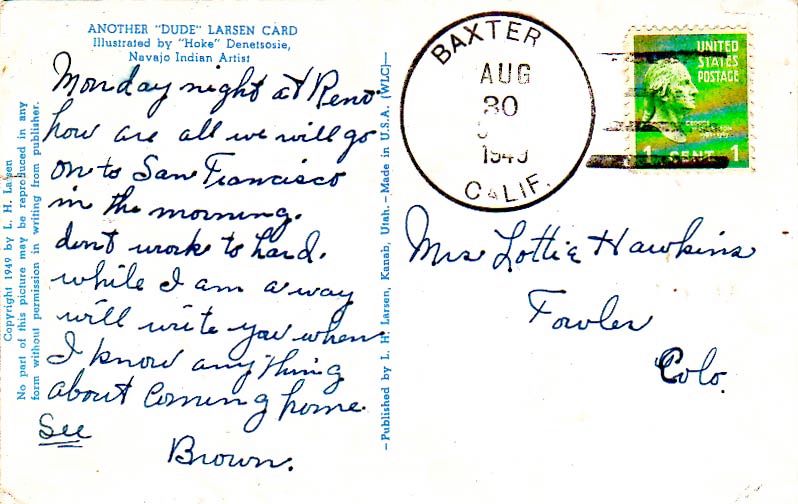 ANOTHER "DUDE" LARSEN CARD
Illustrated by "Hoke" Denetsosie,
Navajo Indian Artist
Monday night at Reno
how are all we will go
on to San Francisco
in the morning.
dont work to hard.
while I am a way
will write you when
I know anything
about coming home.
See
Brown.
Copyright 1949 by L. H. Larsen
No part of this picture may be reproduced in any
form without permission in writing from publisher.
—Published by L. H. Larsen, Kanab, Utah.—Made in U.S.A. (WLC)—
BAXTER
AUG
30
1949
CALIF.
UNITED
STATES
POSTAGE
1 CENT 1
Mrs Lottie Hawkins
Fowler
Colo.